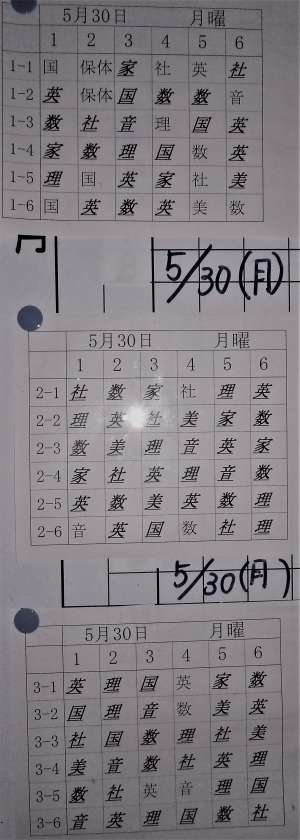 5月30日 月曜
1 2 3 4 5 6
1-1 国 保体 家 社 英 社
1-2 英 保体 国 数 数 音
1-3 数 社 音 理 国 英
1-4 家 数 理 国 数 英
1-5 理 国 英 家 社 美
1-6 国 英 数 英 美 数
5/30(月)
5月30日 月曜
1 2 3 4 5 6
2-1 社 数 家 社 理 英
2-2 理 英 社 美 家 数
2-3 数 美 理 音 英 家
2-4 家 社 英 理 音 数
2-5 英 数 美 英 数 理
2-6 音 英 国 数 社 理
5/30(月)
5月30日 月曜
1 2 3 4 5 6
3-1 英 理 国 英 家 数
3-2 国 理 音 数 美 英
3-3 社 国 数 理 社 美
3-4 美 音 数 社 英 理
3-5 数 社 英 音 理 国
3-6 音 英 理 国 数 社